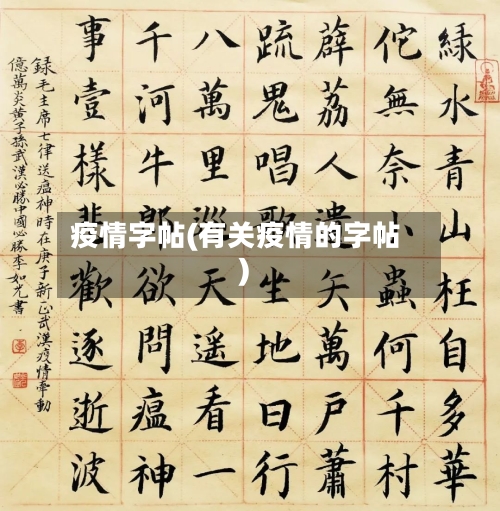 綠水青山枉自多華
佗無奈小蟲何千村
薜荔人遺矢萬戶蕭
疏鬼唱歌坐地日行
八萬里巡天遙看一
千河牛郎欲問瘟神
事壹樣悲歡逐逝波
錄毛主席七律送瘟神時在庚子新正武漢疫情牽動
億萬炎黃子孫武漢必勝中國必勝李如光書
疫情字帖(有关疫情的字帖
)